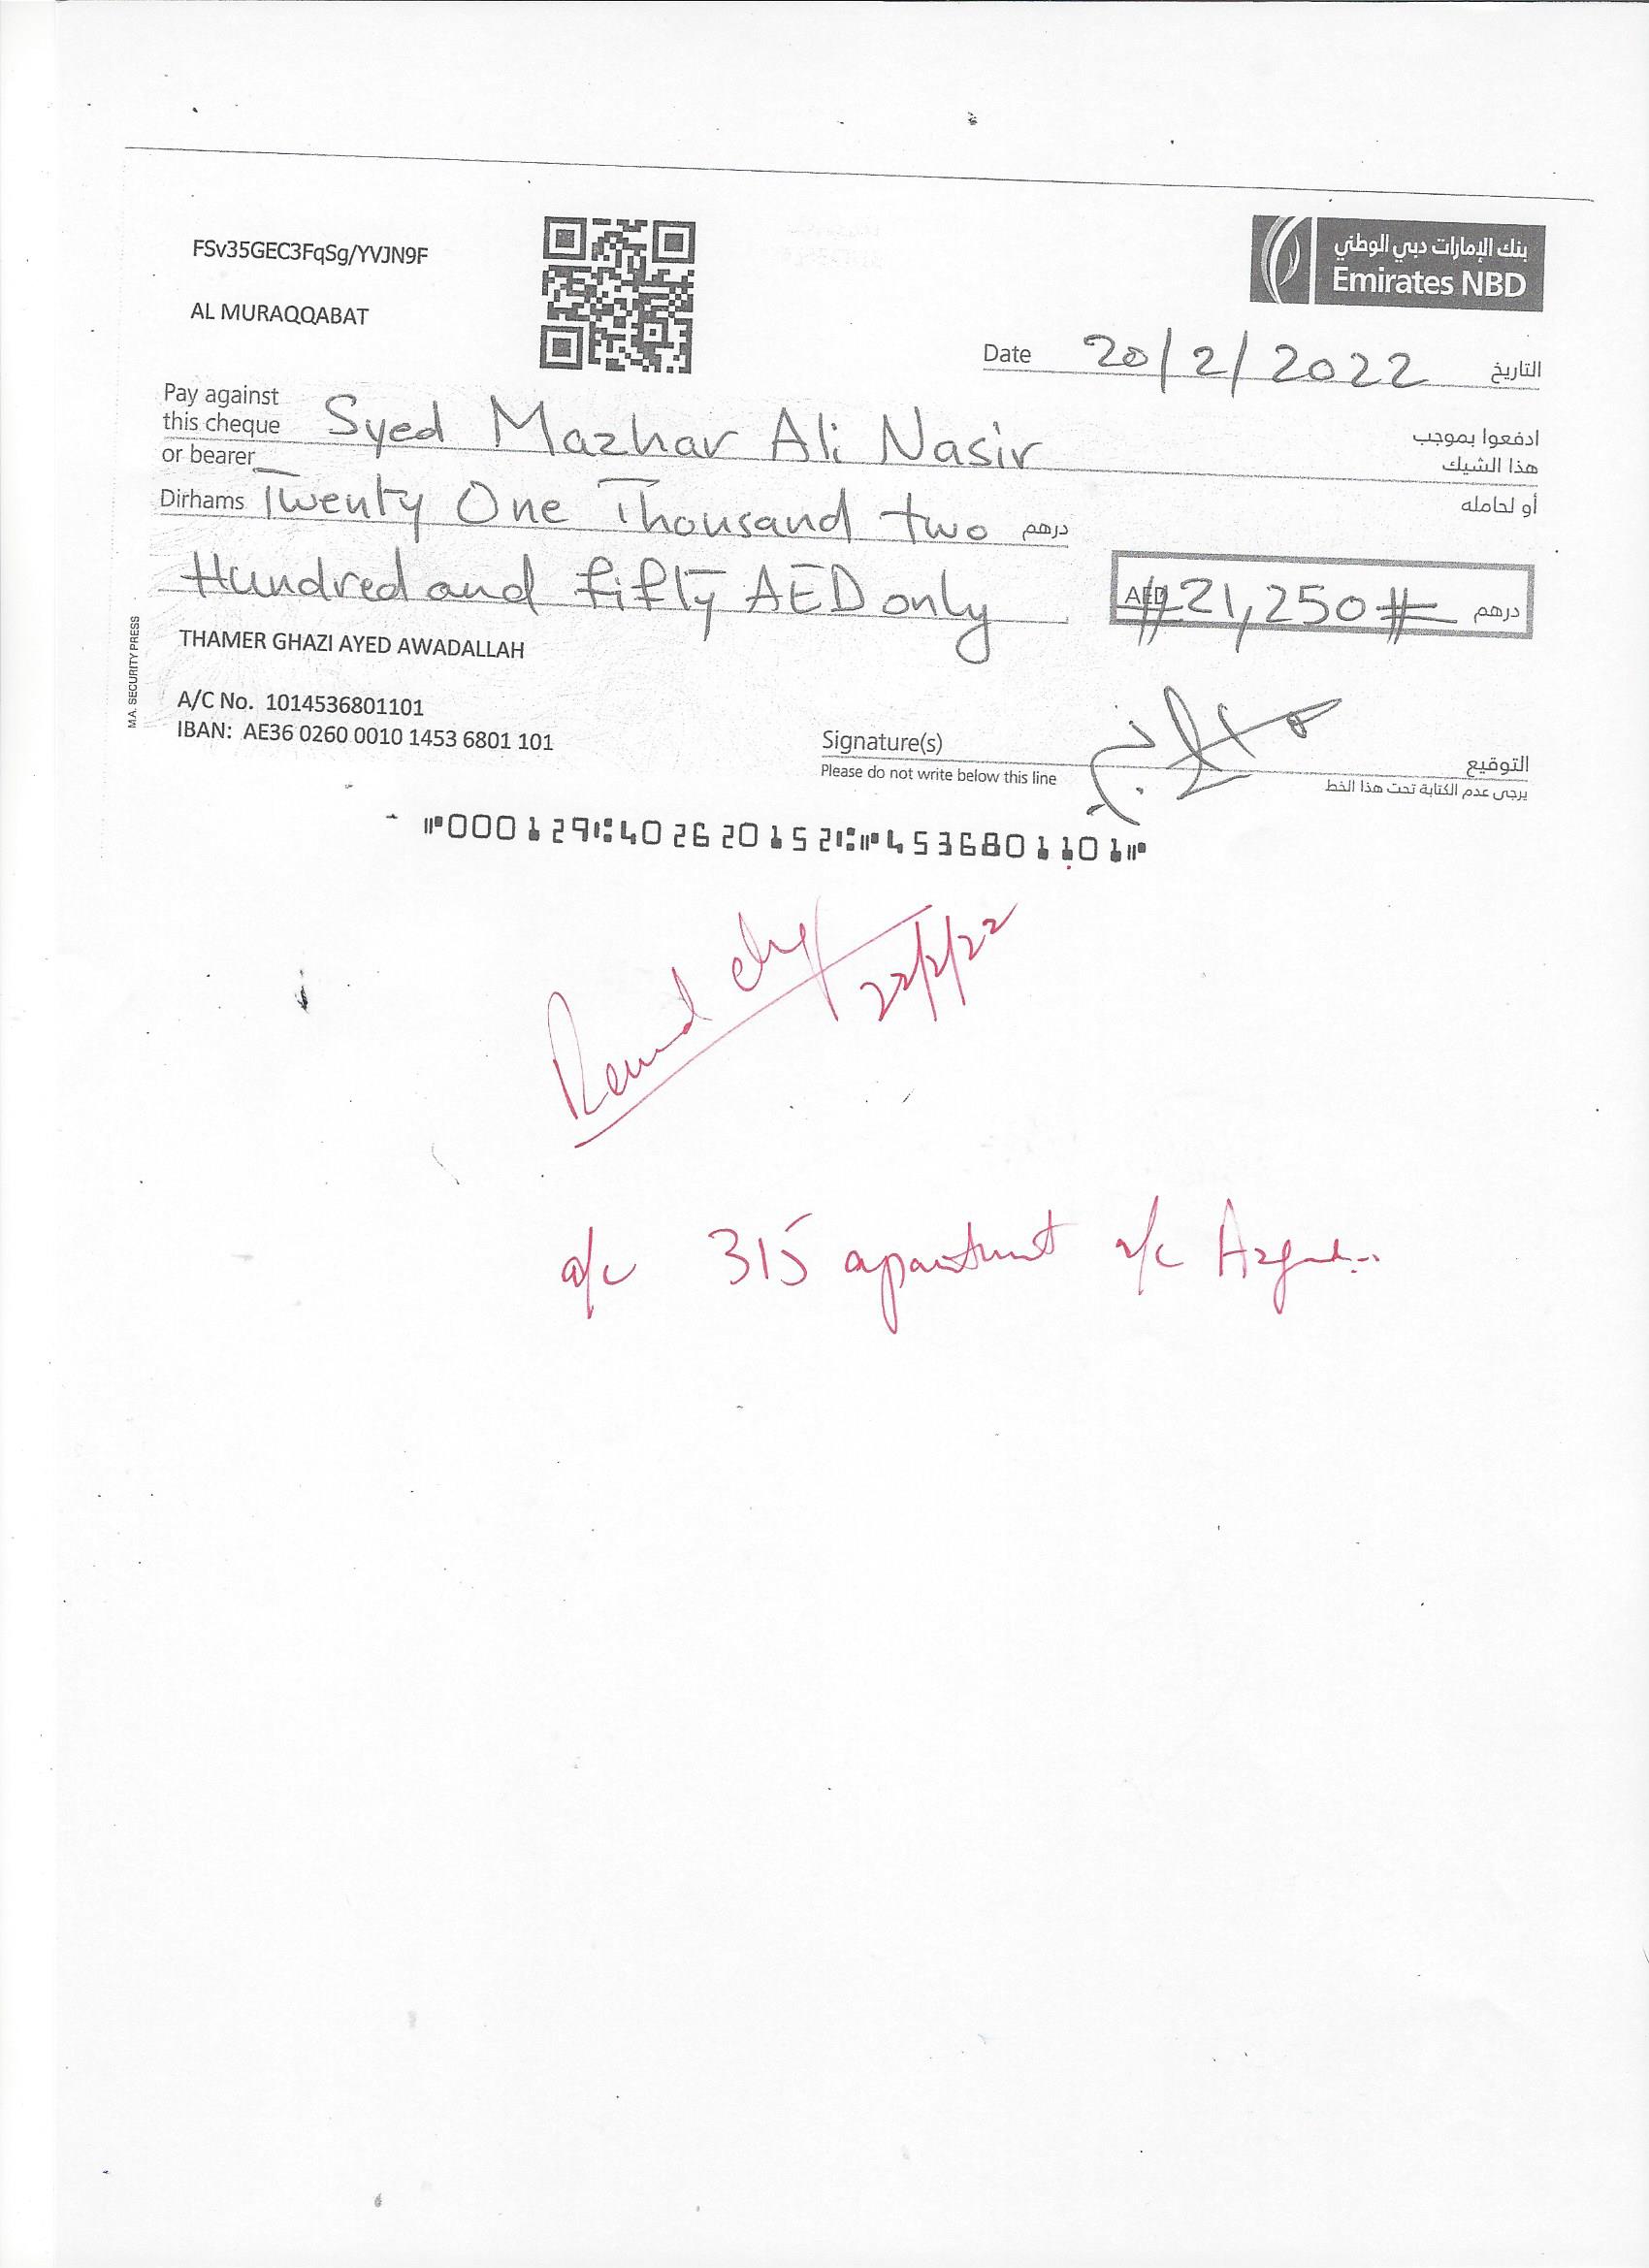 FSv35GEC3FqSg/YVJN9F
AL MURAQQABAT
بنك الإمارات دبي الوطني
Emirates NBD
Date 20/2/2022 التاريخ
Pay against
this cheque Syed Mazhar Ali Nasir ادفعوا بموجب
or bearer هذا الشيك
أو لحامله
Dirhams Twenty One Thousand two درهم
Hundred and fifty AED only
AED #21,250# درهم
M.A. SECURITY PRESS
THAMER GHAZI AYED AWADALLAH
A/C No. 1014536801101
IBAN: AE36 0260 0010 1453 6801 101
Signature(s) التوقيع
Please do not write below this line يرجى عدم الكتابة تحت هذا الخط
⑈000129⑆402620152⑆⑈4536801101⑈
22/2/22
a/c 315 apartment a/c